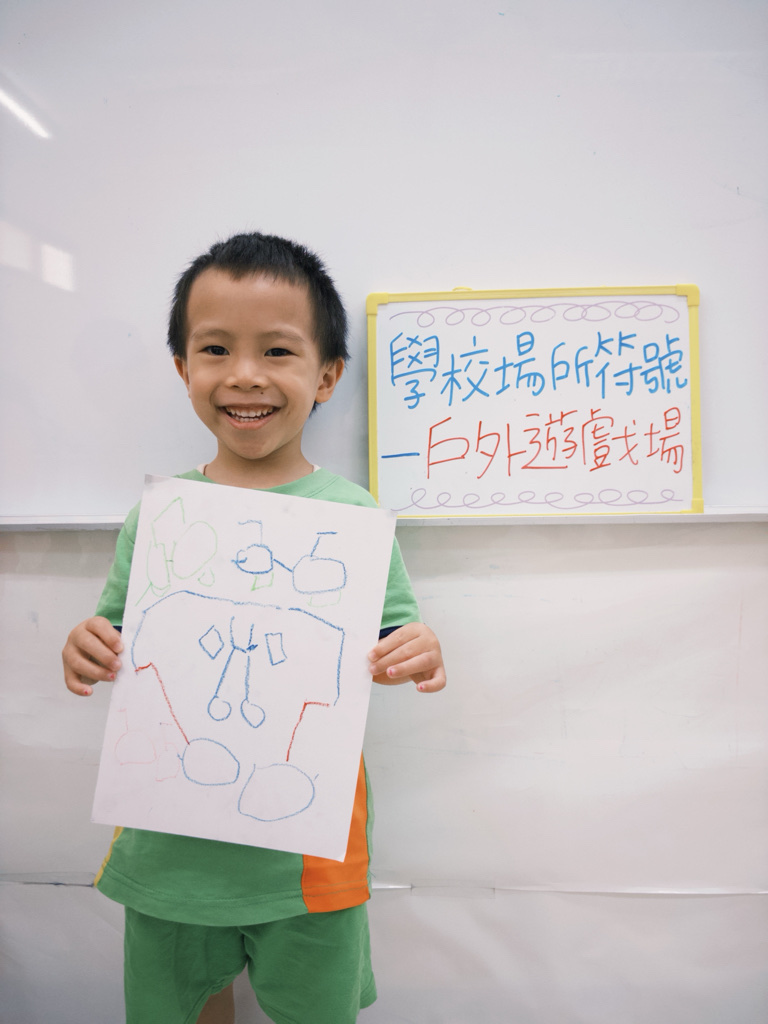 學校場所符號
—戶外遊戲場